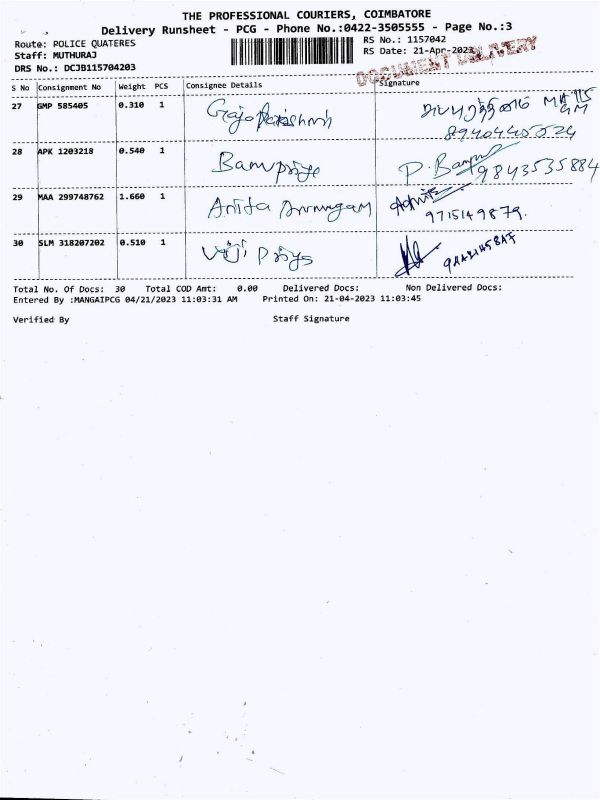 THE PROFESSIONAL COURIERS, COIMBATORE
Delivery Runsheet - PCG - Phone No.:0422-3505555 - Page No.:3
Route: POLICE QUATERES
Staff: MUTHURAJ
DRS No.: DCJB115704203
RS No.: 1157042
RS Date: 21-Apr-2023
DOCUMENT DELIVERY
S No Consignment No Weight PCS Consignee Details Signature
27 GMP 585405 0.310 1
8940440524
28 APK 1203218 0.540 1 Banupriya P. Banu 9843535884
29 MAA 299748762 1.660 1 Anita Arumugam
9715149879.
30 SLM 318207202 0.510 1 Viji Priya
Total No. Of Docs: 30 Total COD Amt: 0.00 Delivered Docs: Non Delivered Docs:
Entered By :MANGAIPCG 04/21/2023 11:03:31 AM Printed On: 21-04-2023 11:03:45
Verified By Staff Signature